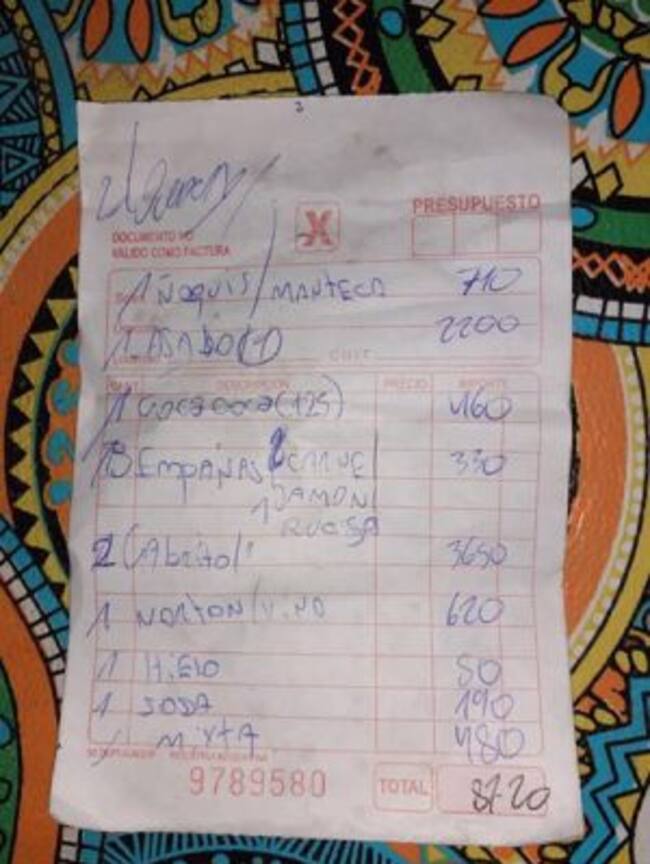 X
PRESUPUESTO
DOCUMENTO NO
VALIDO COMO FACTURA
1 ÑOQUIS / MANTECA 710
1 ASADO (1) 2200
C.U.I.T.
CANT. DESCRIPCION PRECIO IMPORTE
1 COCA COCA (125) 460
3 EMPAÑAS 2 CARNE 330
1 JAMON
2 CABRITO 3650
1 NORTON / VINO 620
1 HIELO 80
1 SODA 190
1 MIXTA 480
9789580 TOTAL 8720